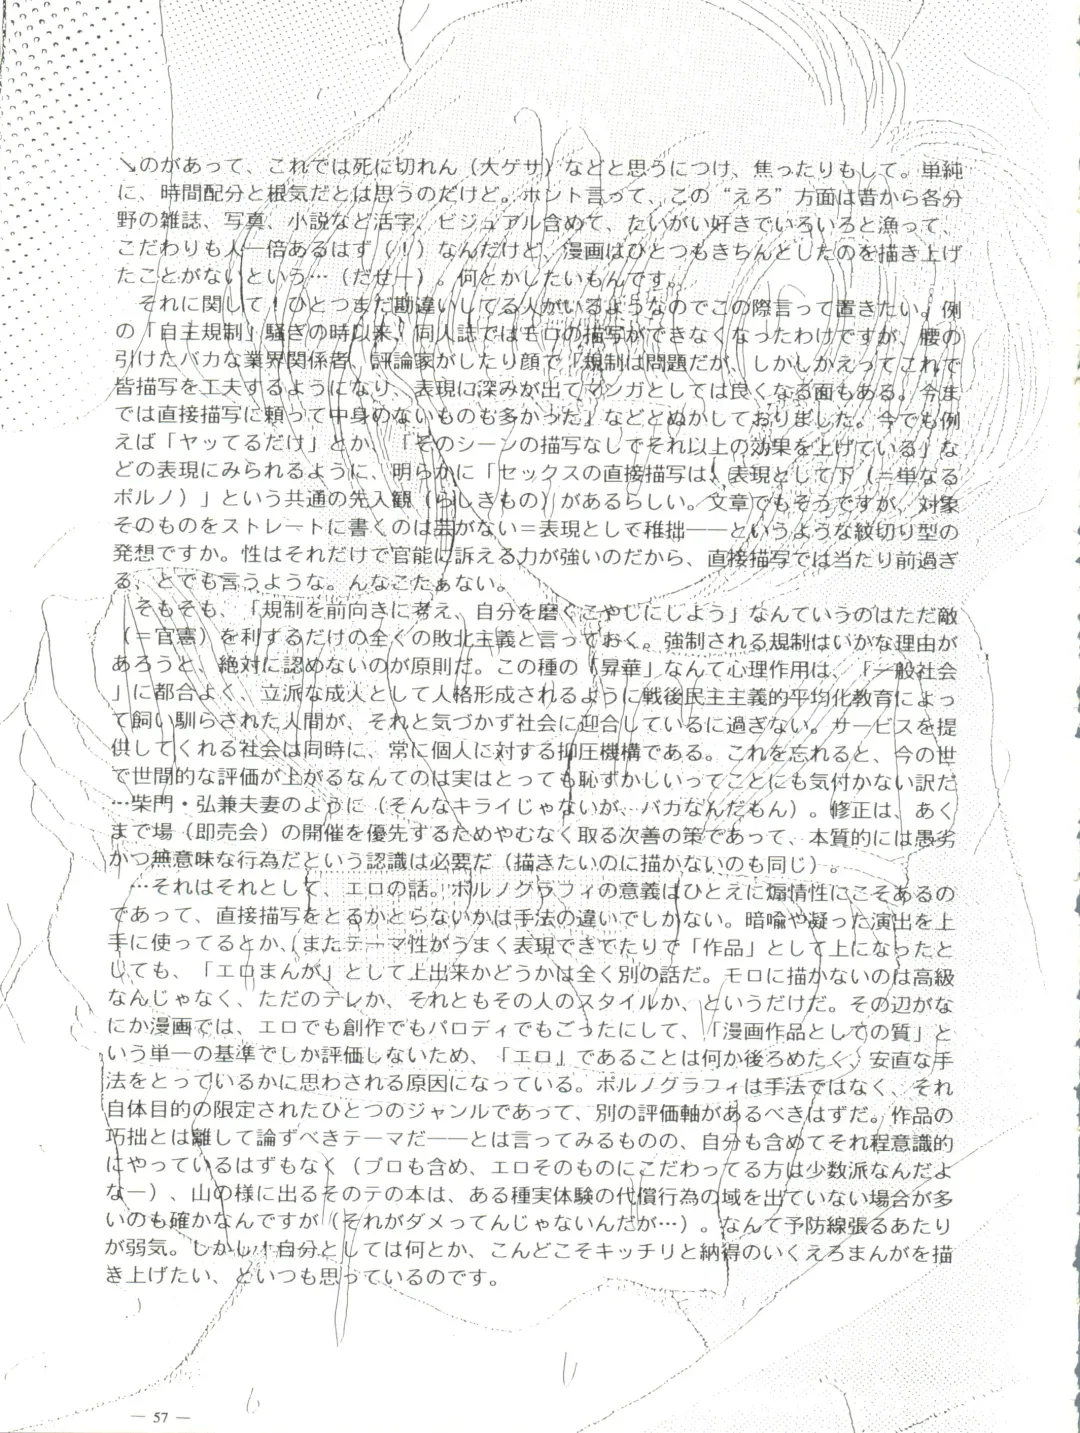 ↘のがあって、これでは死に切れん（大ゲサ）などと思うにつけ、焦ったりもして。単純
に、時間配分と根気だとは思うのだけど。ホント言って、この“えろ”方面は昔から各分
野の雑誌、写真、小説など活字、ビジュアル含めて、たいがい好きでいろいろと漁って、
こだわりも人一倍あるはず（！）なんだけど、漫画はひとつもきちんとしたのを描き上げ
たことがないという…（だせー）。何とかしたいもんです。
それに関して！ひとつまだ勘違いしてる人がいるようなのでこの際言って置きたい。例
の「自主規制」騒ぎの時以来、同人誌ではモロの描写ができなくなったわけですが、腰の
引けたバカな業界関係者、評論家がしたり顔で「規制は問題だが、しかしかえってこれで
皆描写を工夫するようになり、表現に深みが出てマンガとしては良くなる面もある。今ま
では直接描写に頼って中身のないものも多かった」などとぬかしておりました。今でも例
えば「ヤッてるだけ」とか、「そのシーンの描写なしでそれ以上の効果を上げている」な
どの表現にみられるように、明らかに「セックスの直接描写は、表現として下（＝単なる
ポルノ）」という共通の先入観（らしきもの）があるらしい。文章でもそうですが、対象
そのものをストレートに書くのは芸がない＝表現として稚拙――というような紋切り型の
発想ですか。性はそれだけで官能に訴える力が強いのだから、直接描写では当たり前過ぎ
る、とでも言うような。んなこたぁない。
そもそも、「規制を前向きに考え、自分を磨くこやしにしよう」なんていうのはただ敵
（＝官憲）を利するだけの全くの敗北主義と言っておく。強制される規制はいかな理由が
あろうと、絶対に認めないのが原則だ。この種の「昇華」なんて心理作用は、「一般社会
」に都合よく、立派な成人として人格形成されるように戦後民主主義的平均化教育によっ
て飼い馴らされた人間が、それと気づかず社会に迎合しているに過ぎない。サービスを提
供してくれる社会は同時に、常に個人に対する抑圧機構である。これを忘れると、今の世
で世間的な評価が上がるなんてのは実はとっても恥ずかしいってことにも気付かない訳だ
…柴門・弘兼夫妻のように（そんなキライじゃないが、バカなんだもん）。修正は、あく
まで場（即売会）の開催を優先するためやむなく取る次善の策であって、本質的には愚劣
かつ無意味な行為だという認識は必要だ（描きたいのに描かないのも同じ）。
…それはそれとして、エロの話。ポルノグラフィの意義はひとえに煽情性にこそあるの
であって、直接描写をとるかとらないかは手法の違いでしかない。暗喩や凝った演出を上
手に使ってるとか、またテーマ性がうまく表現できてたりで「作品」として上になったと
しても、「エロまんが」として上出来かどうかは全く別の話だ。モロに描かないのは高級
なんじゃなく、ただのテレか、それともその人のスタイルか、というだけだ。その辺がな
にか漫画では、エロでも創作でもパロディでもごったにして、「漫画作品としての質」と
いう単一の基準でしか評価しないため、「エロ」であることは何か後ろめたく、安直な手
法をとっているかに思わされる原因になっている。ポルノグラフィは手法ではなく、それ
自体目的の限定されたひとつのジャンルであって、別の評価軸があるべきはずだ。作品の
巧拙とは離して論ずべきテーマだ――とは言ってみるものの、自分も含めてそれ程意識的
にやっているはずもなく（プロも含め、エロそのものにこだわってる方は少数派なんだよ
なー）、山の様に出るそのテの本は、ある種実体験の代償行為の域を出ていない場合が多
いのも確かなんですが（それがダメってんじゃないんだが…）。なんて予防線張るあたり
が弱気。しかし！自分としては何とか、こんどこそキッチリと納得のいくえろまんがを描
き上げたい、といつも思っているのです。
— 57 —